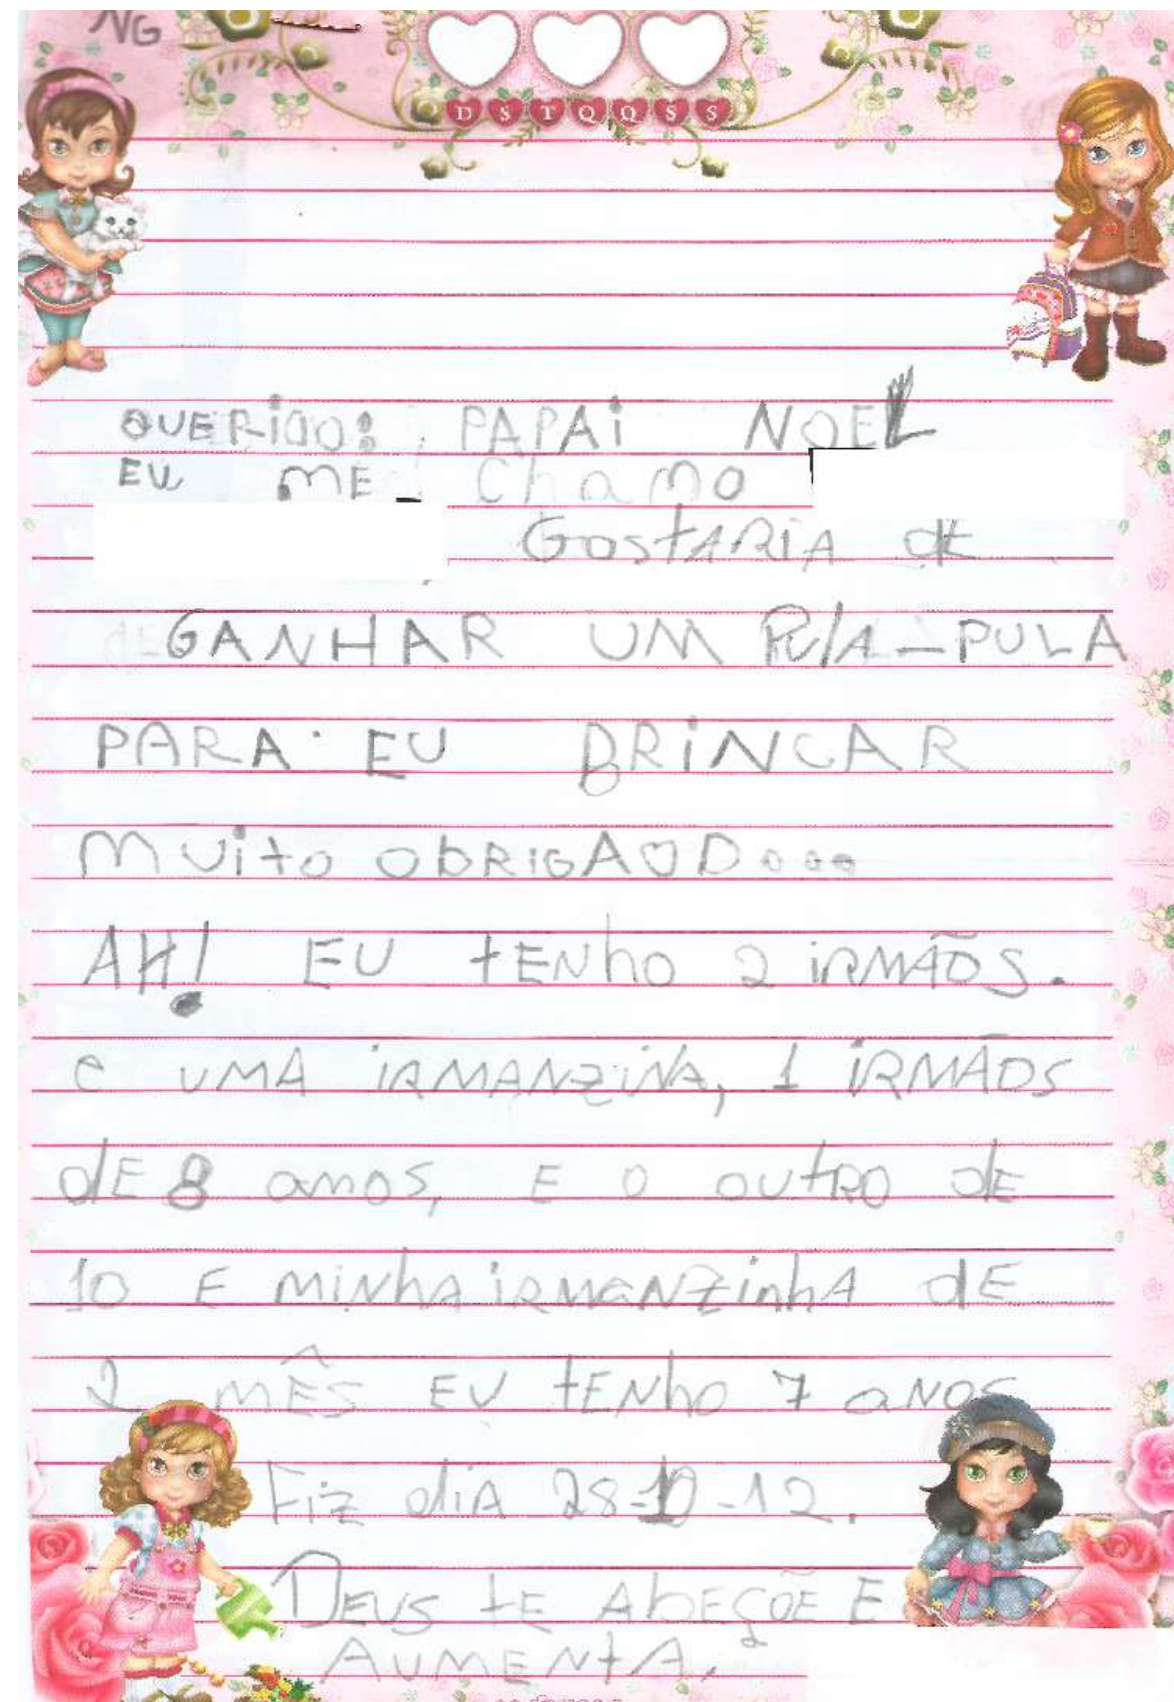 NG
D S T Q Q S S
QUERIDO: PAPAI NOEL
EU ME Chamo
GostARIA de
GANHAR UM PulA-PULA
PARA EU BRINCAR
muito obRIGAOD...
AH! EU tENho 2 iRMÃOS.
e UMA iRMANZiNA, 1 iRMÃOS
dE 8 anos, E O outRO dE
10 E MiNhA iRMANZinhA dE
2 MÊS EU tENho 7 aNOS
Fiz diA 28-10-12.
DEUS tE AbEÇÕE E
AUMENtA.